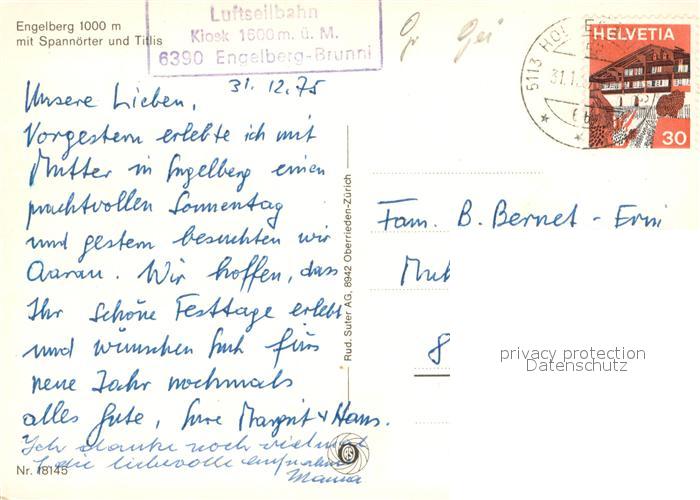 Engelberg 1000 m
mit Spannörter und Titlis
Luftseilbahn
Kiosk 1600 m. ü. M.
6390 Engelberg-Brunni
31. 12. 75
Unsere Lieben,
Vorgestern erlebte ich mit
Mutter in Engelberg einen
prachtvollen Sonnentag
und gestern besuchten wir
Aarau. Wir hoffen, dass
Ihr schöne Festtage erlebt
und wünschen Euch fürs
neue Jahr nochmals
alles Gute, Eure Margrit + Hans.
Ich danke noch vielmal
f. die liebevolle aufnahme
Mama
Nr. 18145
Rud. Suter AG, 8942 Oberrieden-Zürich
5113 HOL
31.1
HELVETIA
30
Fam. B. Bernet - Erni
8
privacy protection
Datenschutz